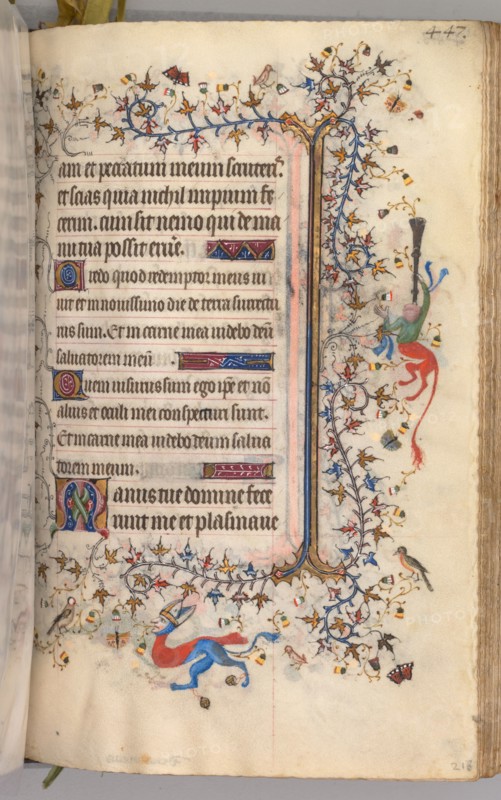 447.
am et peccatum meum scruteris.
et scias quia nichil impium fe
cerim. cum sit nemo qui de ma
nu tua possit eruere.
Credo quod redemptor meus vi
vit et in novissimo die de terra surrectu
rus sum. Et in carne mea videbo deum
salvatorem meum
Quem visurus sum ego ipse et non
alius et oculi mei conspecturi sunt.
Et in carne mea videbo deum salva
torem meum.
Manus tue domine fece
runt me et plasmave
218